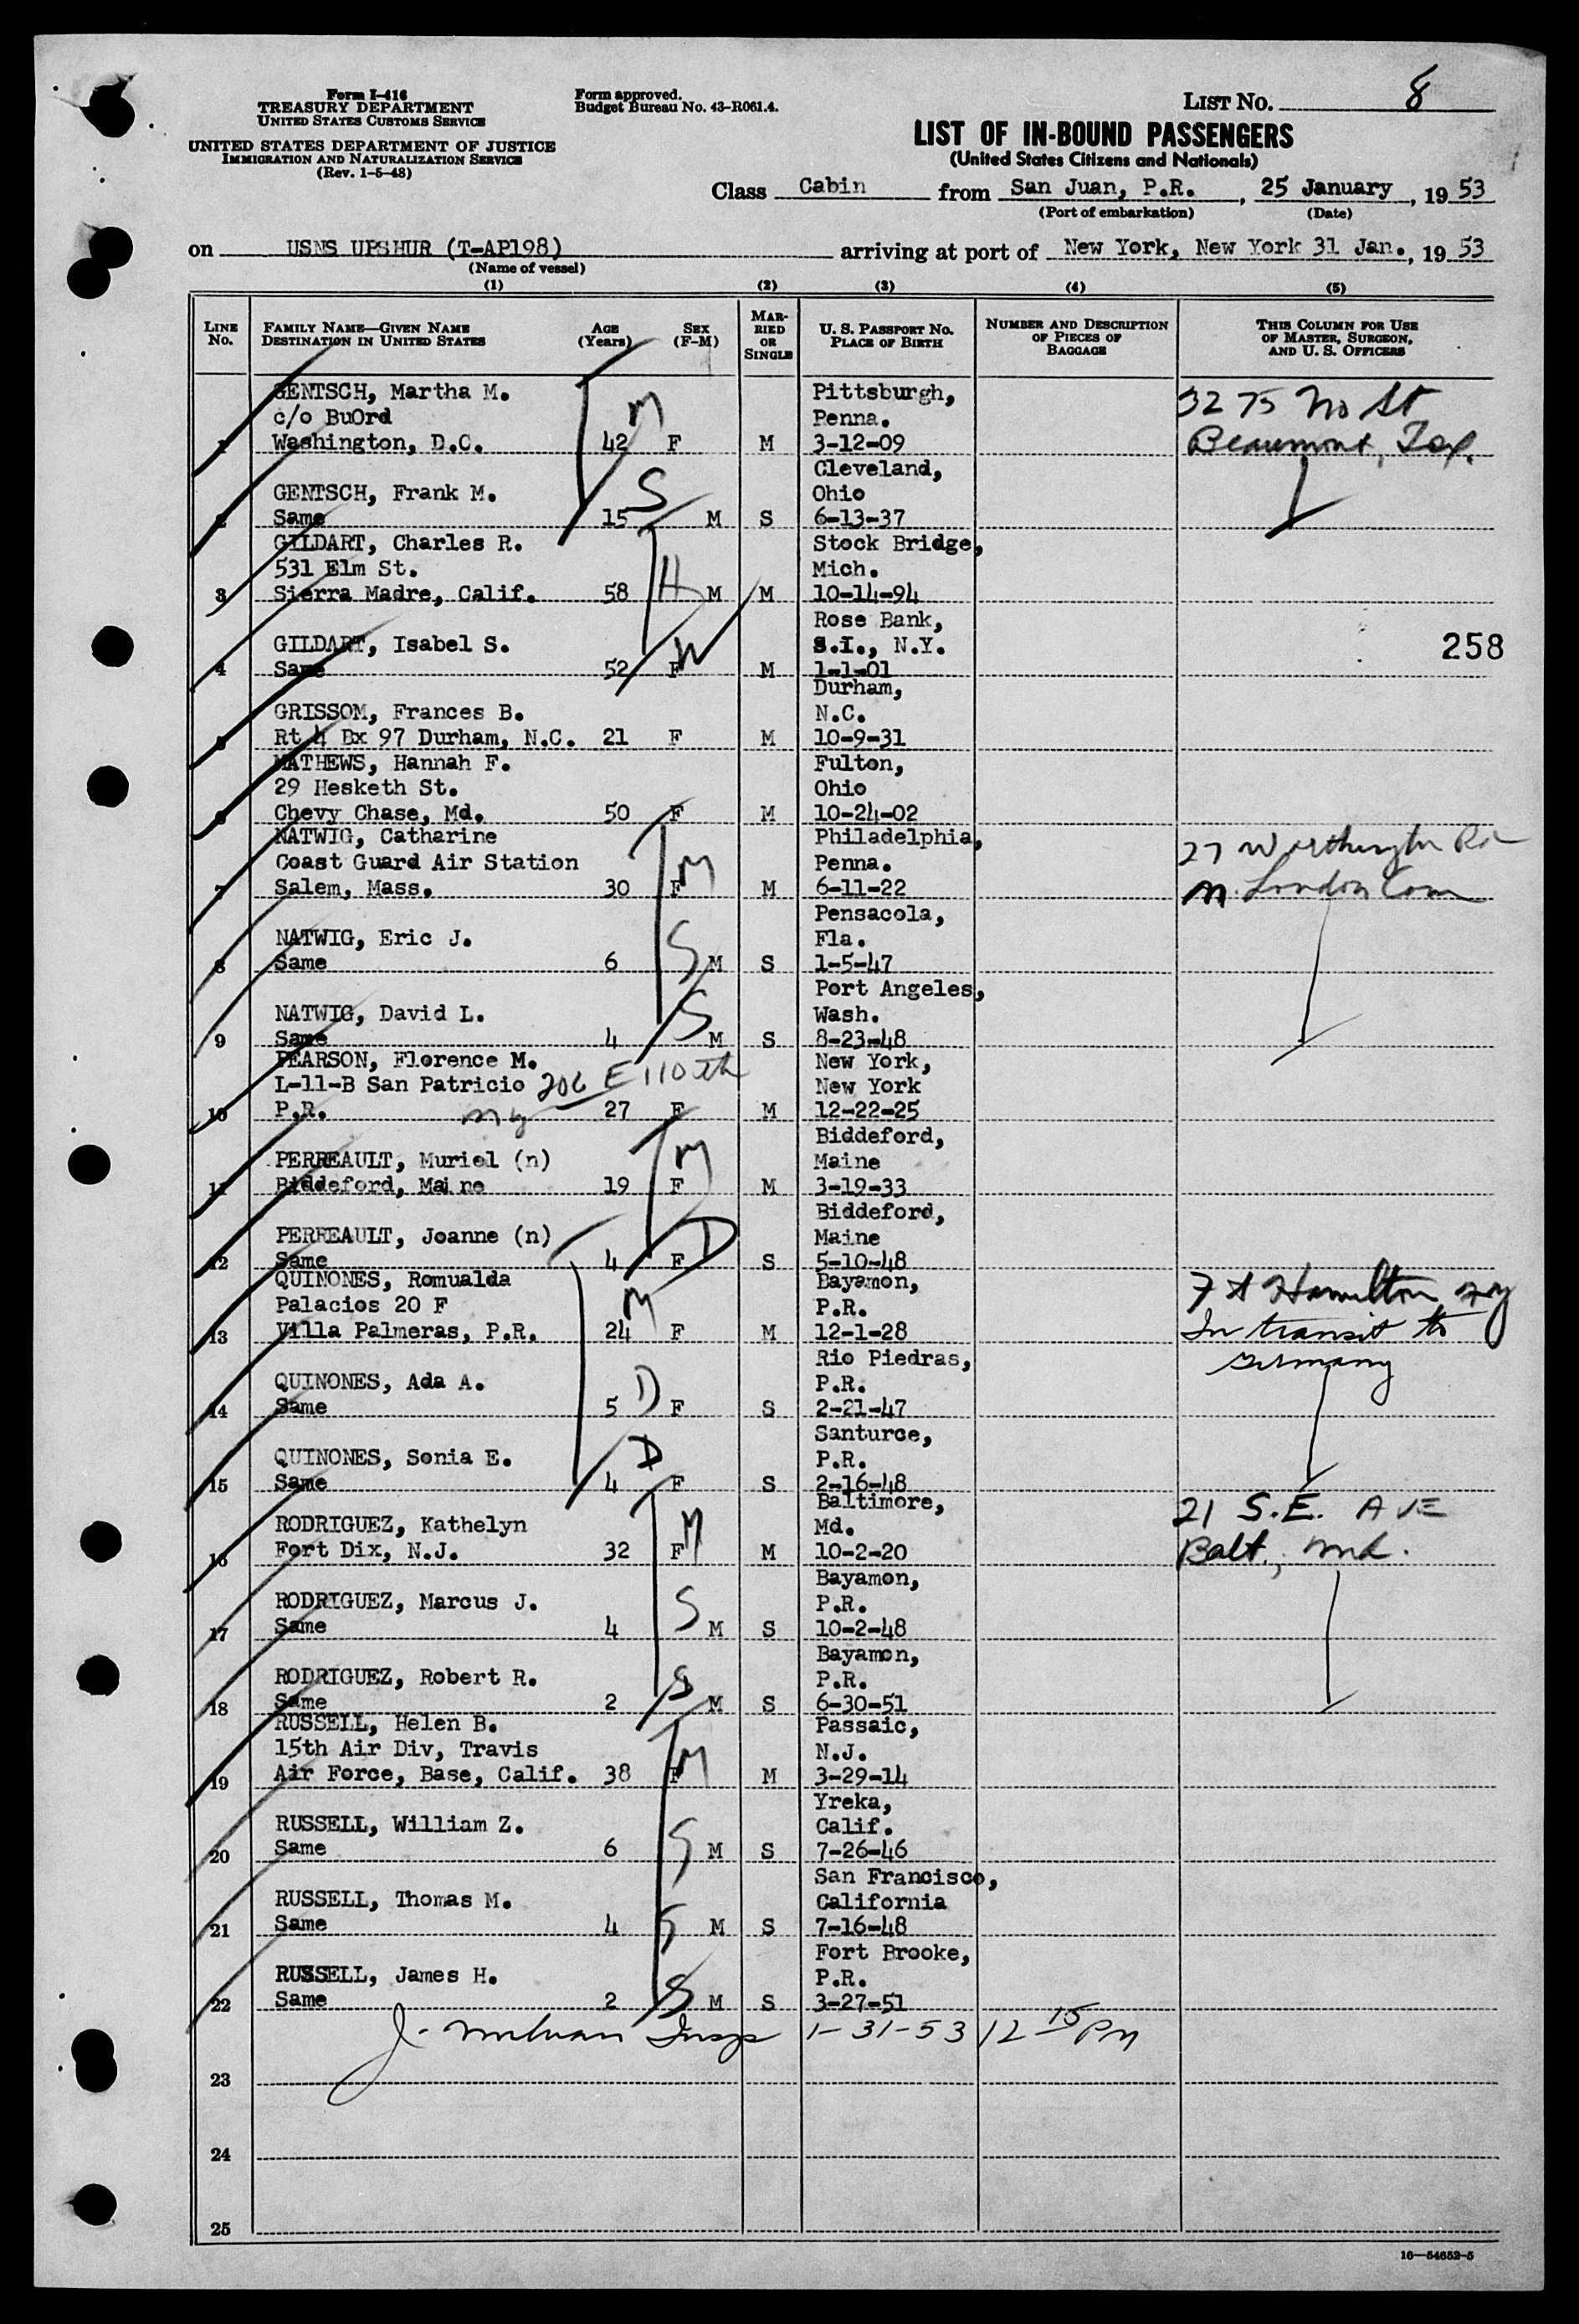 Form I-416
TREASURY DEPARTMENT
UNITED STATES CUSTOMS SERVICE
UNITED STATES DEPARTMENT OF JUSTICE
IMMIGRATION AND NATURALIZATION SERVICE
(Rev. 1-5-48)
Form approved.
Budget Bureau No. 43-R061.4.
LIST No. 8
LIST OF IN-BOUND PASSENGERS
(United States Citizens and Nationals)
Class Cabin from San Juan, P.R., 25 January, 1953
(Port of embarkation) (Date)
on USNS UPSHUR (T-AP198) arriving at port of New York, New York 31 Jan., 1953
(Name of vessel)
(1) (2) (3) (4) (5)
LINE No. FAMILY NAME—GIVEN NAME DESTINATION IN UNITED STATES AGE (Years) SEX (F-M) MARRIED OR SINGLE U. S. PASSPORT No. PLACE OF BIRTH NUMBER AND DESCRIPTION OF PIECES OF BAGGAGE THIS COLUMN FOR USE OF MASTER, SURGEON, AND U. S. OFFICERS
GENTSCH, Martha M. Pittsburgh, 3275 No St
c/o BuOrd M Penna.
1 Washington, D.C. 42 F M 3-12-09 Beaumont, Tex.
Cleveland,
GENTSCH, Frank M. S Ohio
2 Same 15 M S 6-13-37
GILDART, Charles R. Stock Bridge,
531 Elm St. H Mich.
3 Sierra Madre, Calif. 58 M M 10-14-94
Rose Bank,
GILDART, Isabel S. W S.I., N.Y. 258
4 Same 52 F M 1-1-01
Durham,
GRISSOM, Frances B. N.C.
5 Rt 4 Bx 97 Durham, N.C. 21 F M 10-9-31
MATHEWS, Hannah F. Fulton,
29 Hesketh St. Ohio
6 Chevy Chase, Md. 50 F M 10-24-02
NATWIG, Catharine Philadelphia,
Coast Guard Air Station M Penna. 27 Worthington Rd
7 Salem, Mass. 30 F M 6-11-22 N. London Conn
Pensacola,
NATWIG, Eric J. S Fla.
8 Same 6 M S 1-5-47
Port Angeles,
NATWIG, David L. S Wash.
9 Same 4 M S 8-23-48
PEARSON, Florence M. New York,
L-11-B San Patricio 206 E 110th New York
10 P.R. NY 27 F M 12-22-25
Biddeford,
PERREAULT, Muriel (n) M Maine
11 Biddeford, Maine 19 F M 3-19-33
Biddeford,
PERREAULT, Joanne (n) D Maine
12 Same 4 F S 5-10-48
QUINONES, Romualda Bayamon,
Palacios 20 F M P.R. Ft Hamilton NY
13 Villa Palmeras, P.R. 24 F M 12-1-28 In transit to
Rio Piedras, Germany
QUINONES, Ada A. D P.R.
14 Same 5 F S 2-21-47
Santurce,
QUINONES, Sonia E. D P.R.
15 Same 4 F S 2-16-48
Baltimore, 21 S.E. AVE
RODRIGUEZ, Kathelyn M Md.
16 Fort Dix, N.J. 32 F M 10-2-20 Balt., Md.
Bayamon,
RODRIGUEZ, Marcus J. S P.R.
17 Same 4 M S 10-2-48
Bayamon,
RODRIGUEZ, Robert R. S P.R.
18 Same 2 M S 6-30-51
RUSSELL, Helen B. Passaic,
15th Air Div, Travis M N.J.
19 Air Force, Base, Calif. 38 F M 3-29-14
Yreka,
RUSSELL, William Z. Calif.
20 Same 6 S M S 7-26-46
San Francisco,
RUSSELL, Thomas M. California
21 Same 4 S M S 7-16-48
Fort Brooke,
RUSSELL, James H. P.R.
22 Same 2 S M S 3-27-51
J. Insp 1-31-53 12 15 PM
23
24
25
16—54652-5